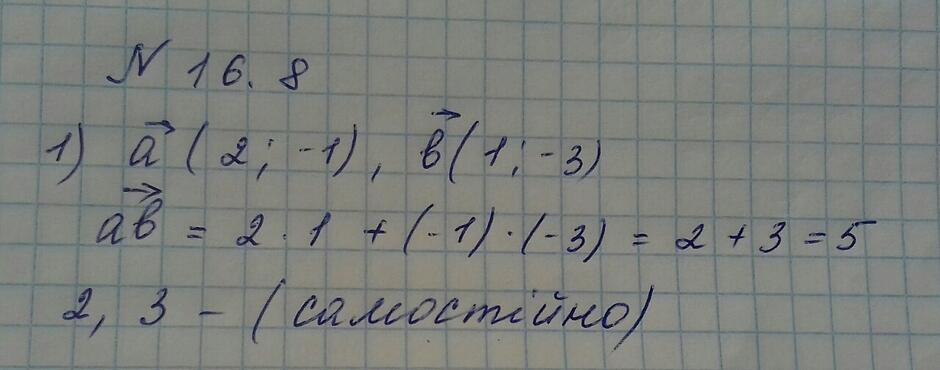 N 16.8
1) a⃗ (2; -1), b⃗ (1; -3)
a⃗b⃗ = 2 · 1 + (-1) · (-3) = 2 + 3 = 5
2, 3 - (самостійно)